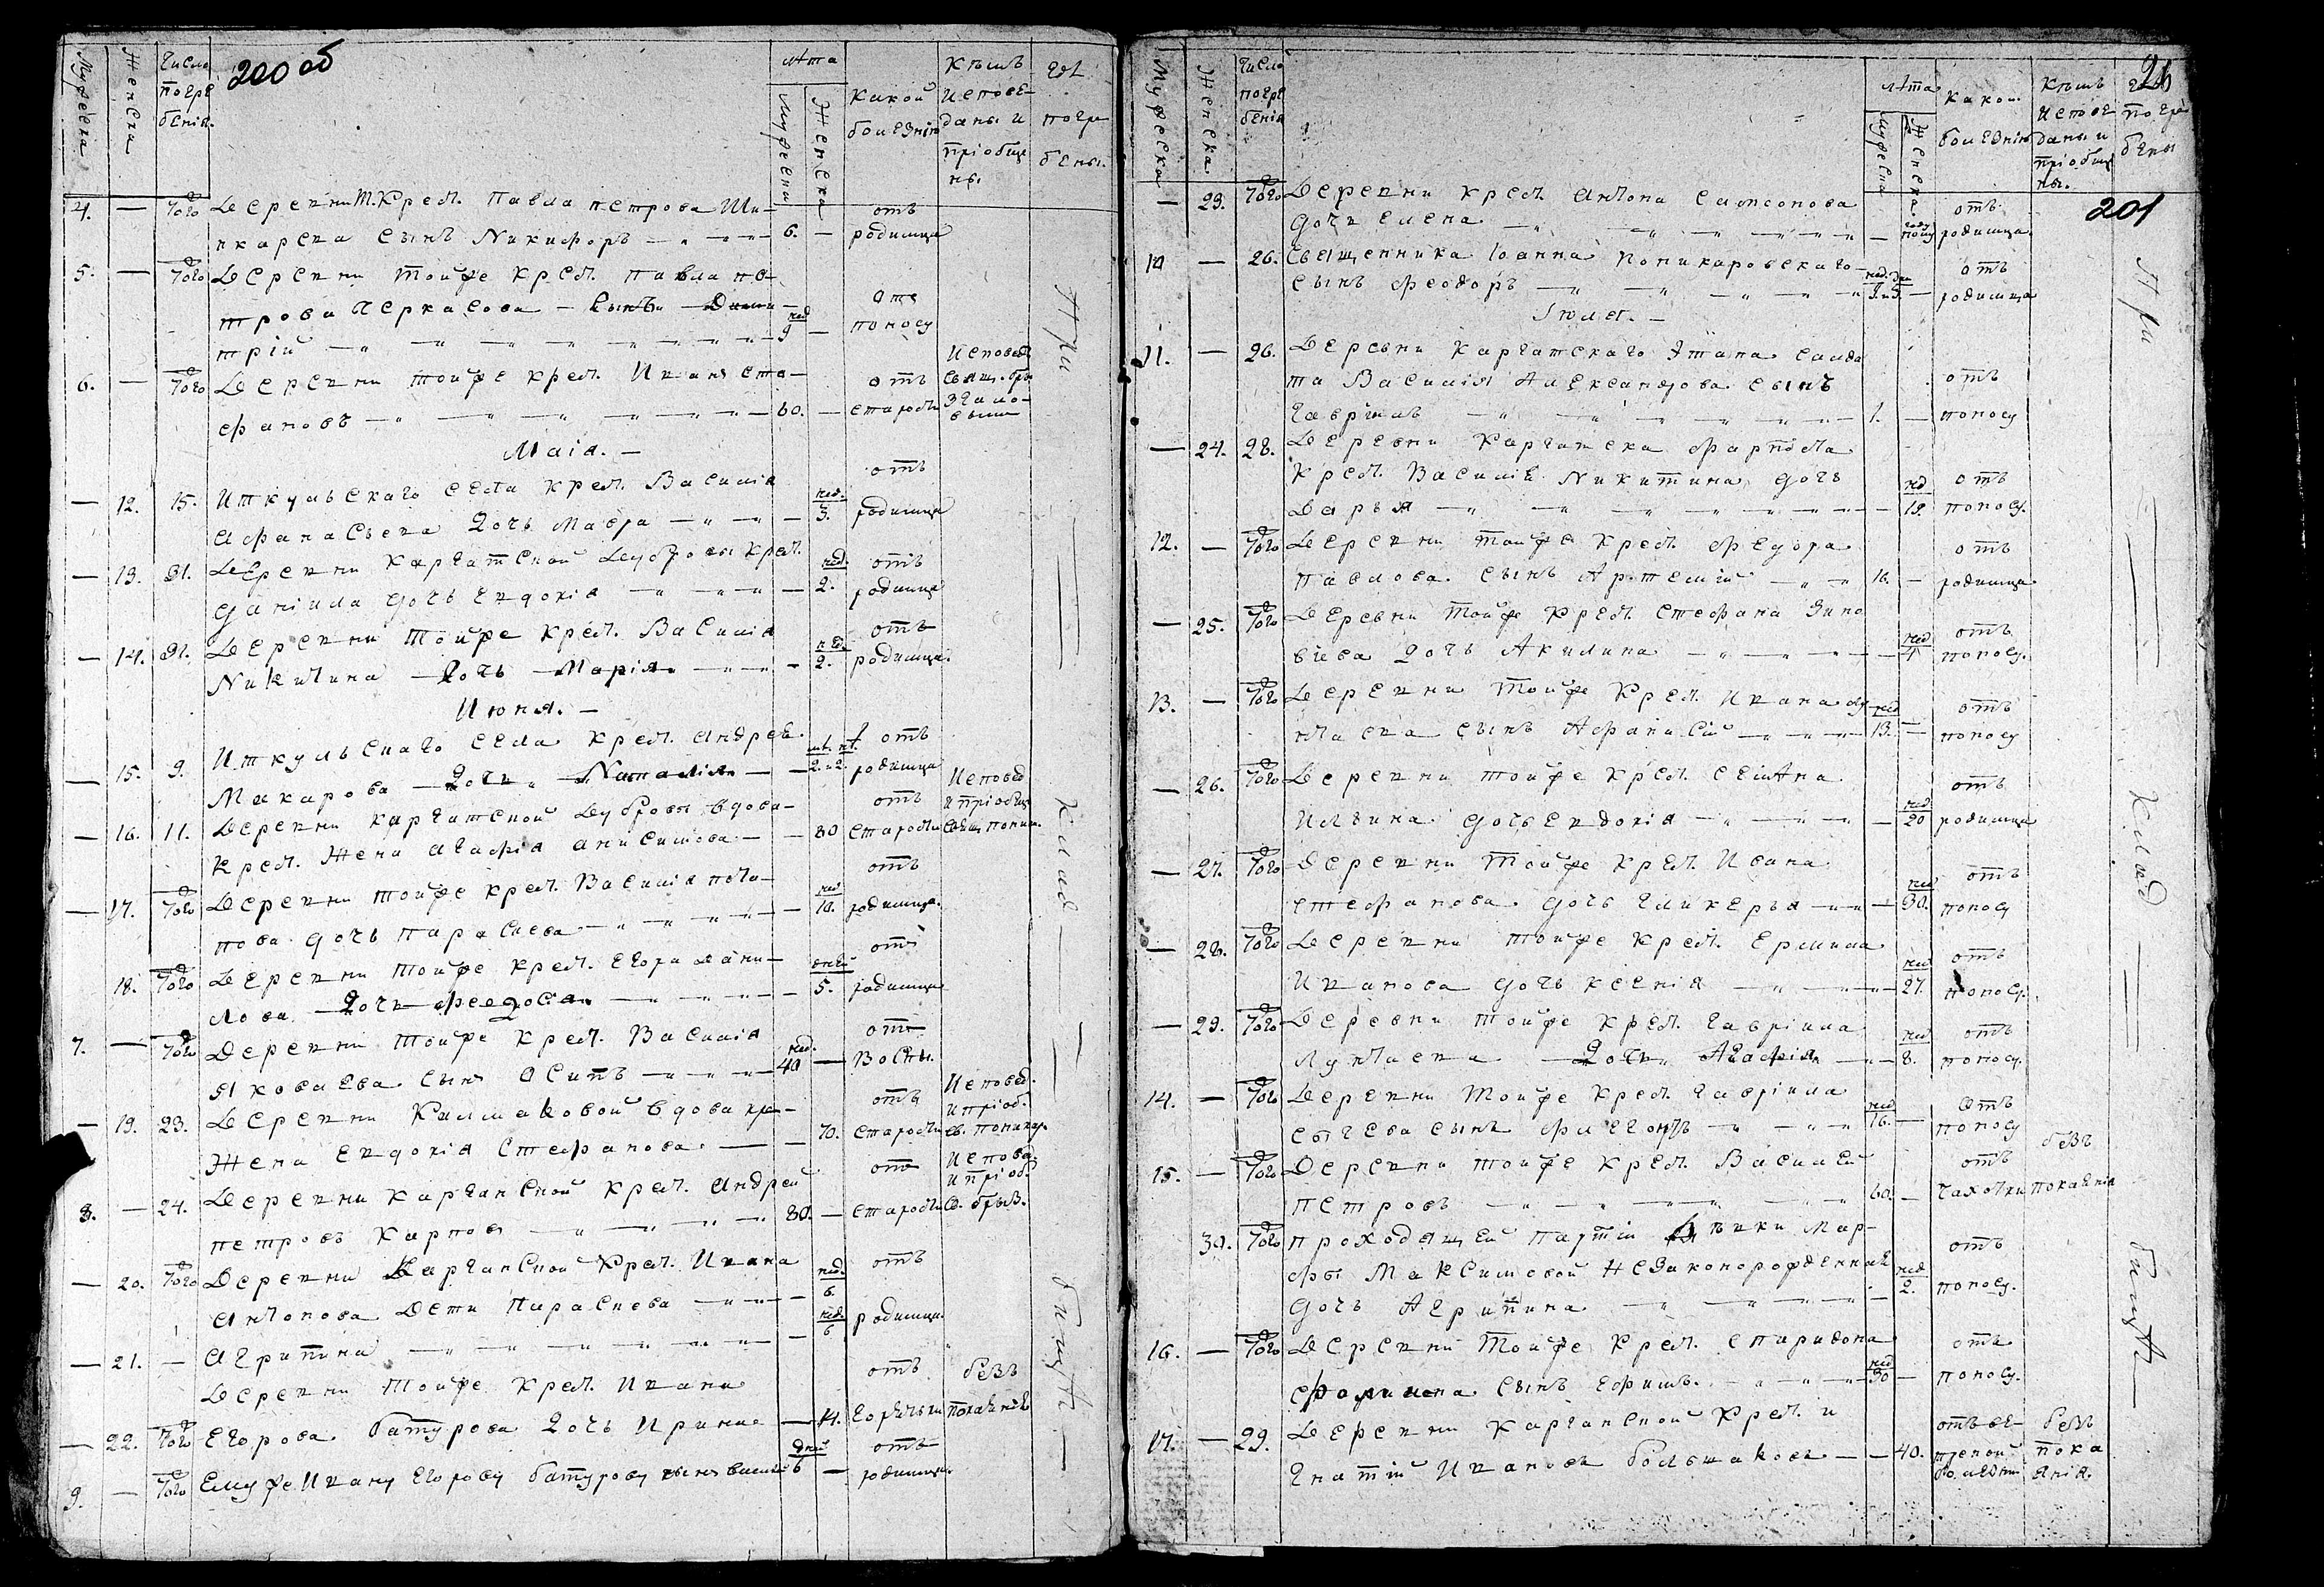 200 об
Мужеска Женска Число погребенiя Лѣта Мужеска Женска Какой болѣзнiю Кѣмъ исповѣданы и прiобщены Гдѣ погребены.
4. — Того Деревни т. Крест. Павла Петрова
сынъ Никифоръ — 6. — отъ родимца
5. — Того Деревни тойже Крест. Павла Пе-
трова Черкасова — сынъ Дими-
трiй — нед 9 — отъ поносу
6. — Того Деревни тойже Крест. Иванъ Сте-
фановъ — 60. — отъ старости Исповѣд.
Маiя. —
— 12. 15. Иткульскаго села Крест. Василiя
Афанасьева дочь Мавра — нед. 3. отъ родимца
— 13. 31. Деревни Каргатской Дубровы Крест.
Данiила дочь Евдокiя — нед. 2. отъ родимца
— 14. 31. Деревни тойже Крест. Василiя
Никитина дочь Марiя — нед. 2. отъ родимца.
Июня. —
— 15. 9. Иткульскаго села Крест. Андрея
Макарова дочь Наталiя — 2. и 2. отъ родимца
— 16. 11. Деревни Каргатской Дубровы вдова
Крест. Жена Агафiя Анисимова — 80 отъ старости Исповѣд. и прiобщ.
— 17. Того Деревни тойже Крест. Василiя Пота-
пова дочь Параскева — нед 10. отъ родимца.
18. Того Деревни тойже Крест. Егора Дани-
лова дочь Феодосiя — дней 5. отъ родимца
7. — Того Деревни тойже Крест. Василiя
Яковлева сынъ Осипъ — нед. 40 — отъ Воспы.
— 19. 23. Деревни Калмаковой вдова кре-
Жена Евдокiя Стефанова — 70. отъ старости Исповѣд. и прiоб.
8. — 24. Деревни Карганской Крест. Андрей
Петровъ Карповъ — 80. — отъ старости Исповѣ. и прiоб.
— 20. Того Деревни Карганской Крест. Ивана
Антонова Дети Параскева — нед. 6. отъ
— 21. — Агрипина — нед. 6 родимца.
Деревни тойже Крест. Ивана
— 22. Того Егорова Батурова дочь Ирина — 14. отъ горячьки безъ покаянiя
9. — Того Емуже Ивану Егорову Батурову сынъ дней 6 — отъ родимца.
При
Клад
бищѣ —
201
Мужеска Женска Число погребенiя Лѣта Мужеска Женска Какою болѣзнiю Кѣмъ исповѣданы и прiобщены. Гдѣ погребены
— 23. Того Деревни Крест. Антона Самсонова
дочь Елена — отъ родимца.
10 — 26. Священника Iоанна Поликаровскаго
сынъ Феодоръ — отъ родимца
Iюля. —
11. — 26. Деревни Каргатскаго Этапа солда
та Василiя Александрова сынъ
Гаврiилъ — 1. — отъ поносу
— 24. 28. Деревни Карганска
Крест. Василiя Никитина дочь
Дарья — нед 19. отъ поносу.
12. — Того Деревни тойже Крест. Федора
Павлова сынъ Артемiй — 16. — отъ родимца.
— 25. Того Деревни тойже Крест. Стефана Зино
вiева дочь Акилина — нед 4 отъ поносу.
13. — Того Деревни тойже Крест. Ивана Лу-
сынъ Афанасiй — нед 13. — отъ поносу
— 26. Того Деревни тойже Крест.
Ильина дочь Евдокiя — нед 20 отъ родимца
— 27. Того Деревни тойже Крест. Ивана
Стефанова дочь Гликерья — нед 30. отъ поносу
— 28. Того Деревни тойже Крест. Ермила
Иванова дочь Ксенiя — нед 27. отъ поносу.
— 29. Того Деревни тойже Крест. Гаврiила
дочь Агафiя — нед 8. отъ поносу.
14. — Того Деревни тойже Крест. Гаврiила
Сычева сынъ Филлонъ — нед 16. — отъ поносу
15. — Того Деревни тойже Крест. Василiй
Петровъ — 60. — отъ Чахотки безъ покаянiя
30. Того Проходящей партiи Дѣвки Мар-
фы Максимовой незаконорожденная
дочь Агрипина — нед 2. отъ поносу.
16. — Того Деревни тойже Крест. Спиридона
сынъ Ефимъ. — нед 30 — отъ поносу.
17. — 29. Деревни Карганской Крест. И
гнатiй Ивановъ Большаковъ — 40. отъ безъ покаянiя.
При
Клад
бищѣ